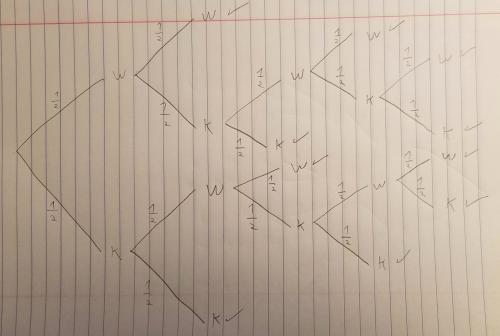 W ✓
1/2
W
1/2
1/2
K
1/2
W
1/2
W ✓
1/2
K
1/2
W ✓
1/2
K ✓
1/2
K ✓
1/2
K
1/2
W
1/2
W ✓
1/2
K
1/2
W
1/2
W ✓
1/2
K ✓
1/2
K ✓
1/2
K ✓